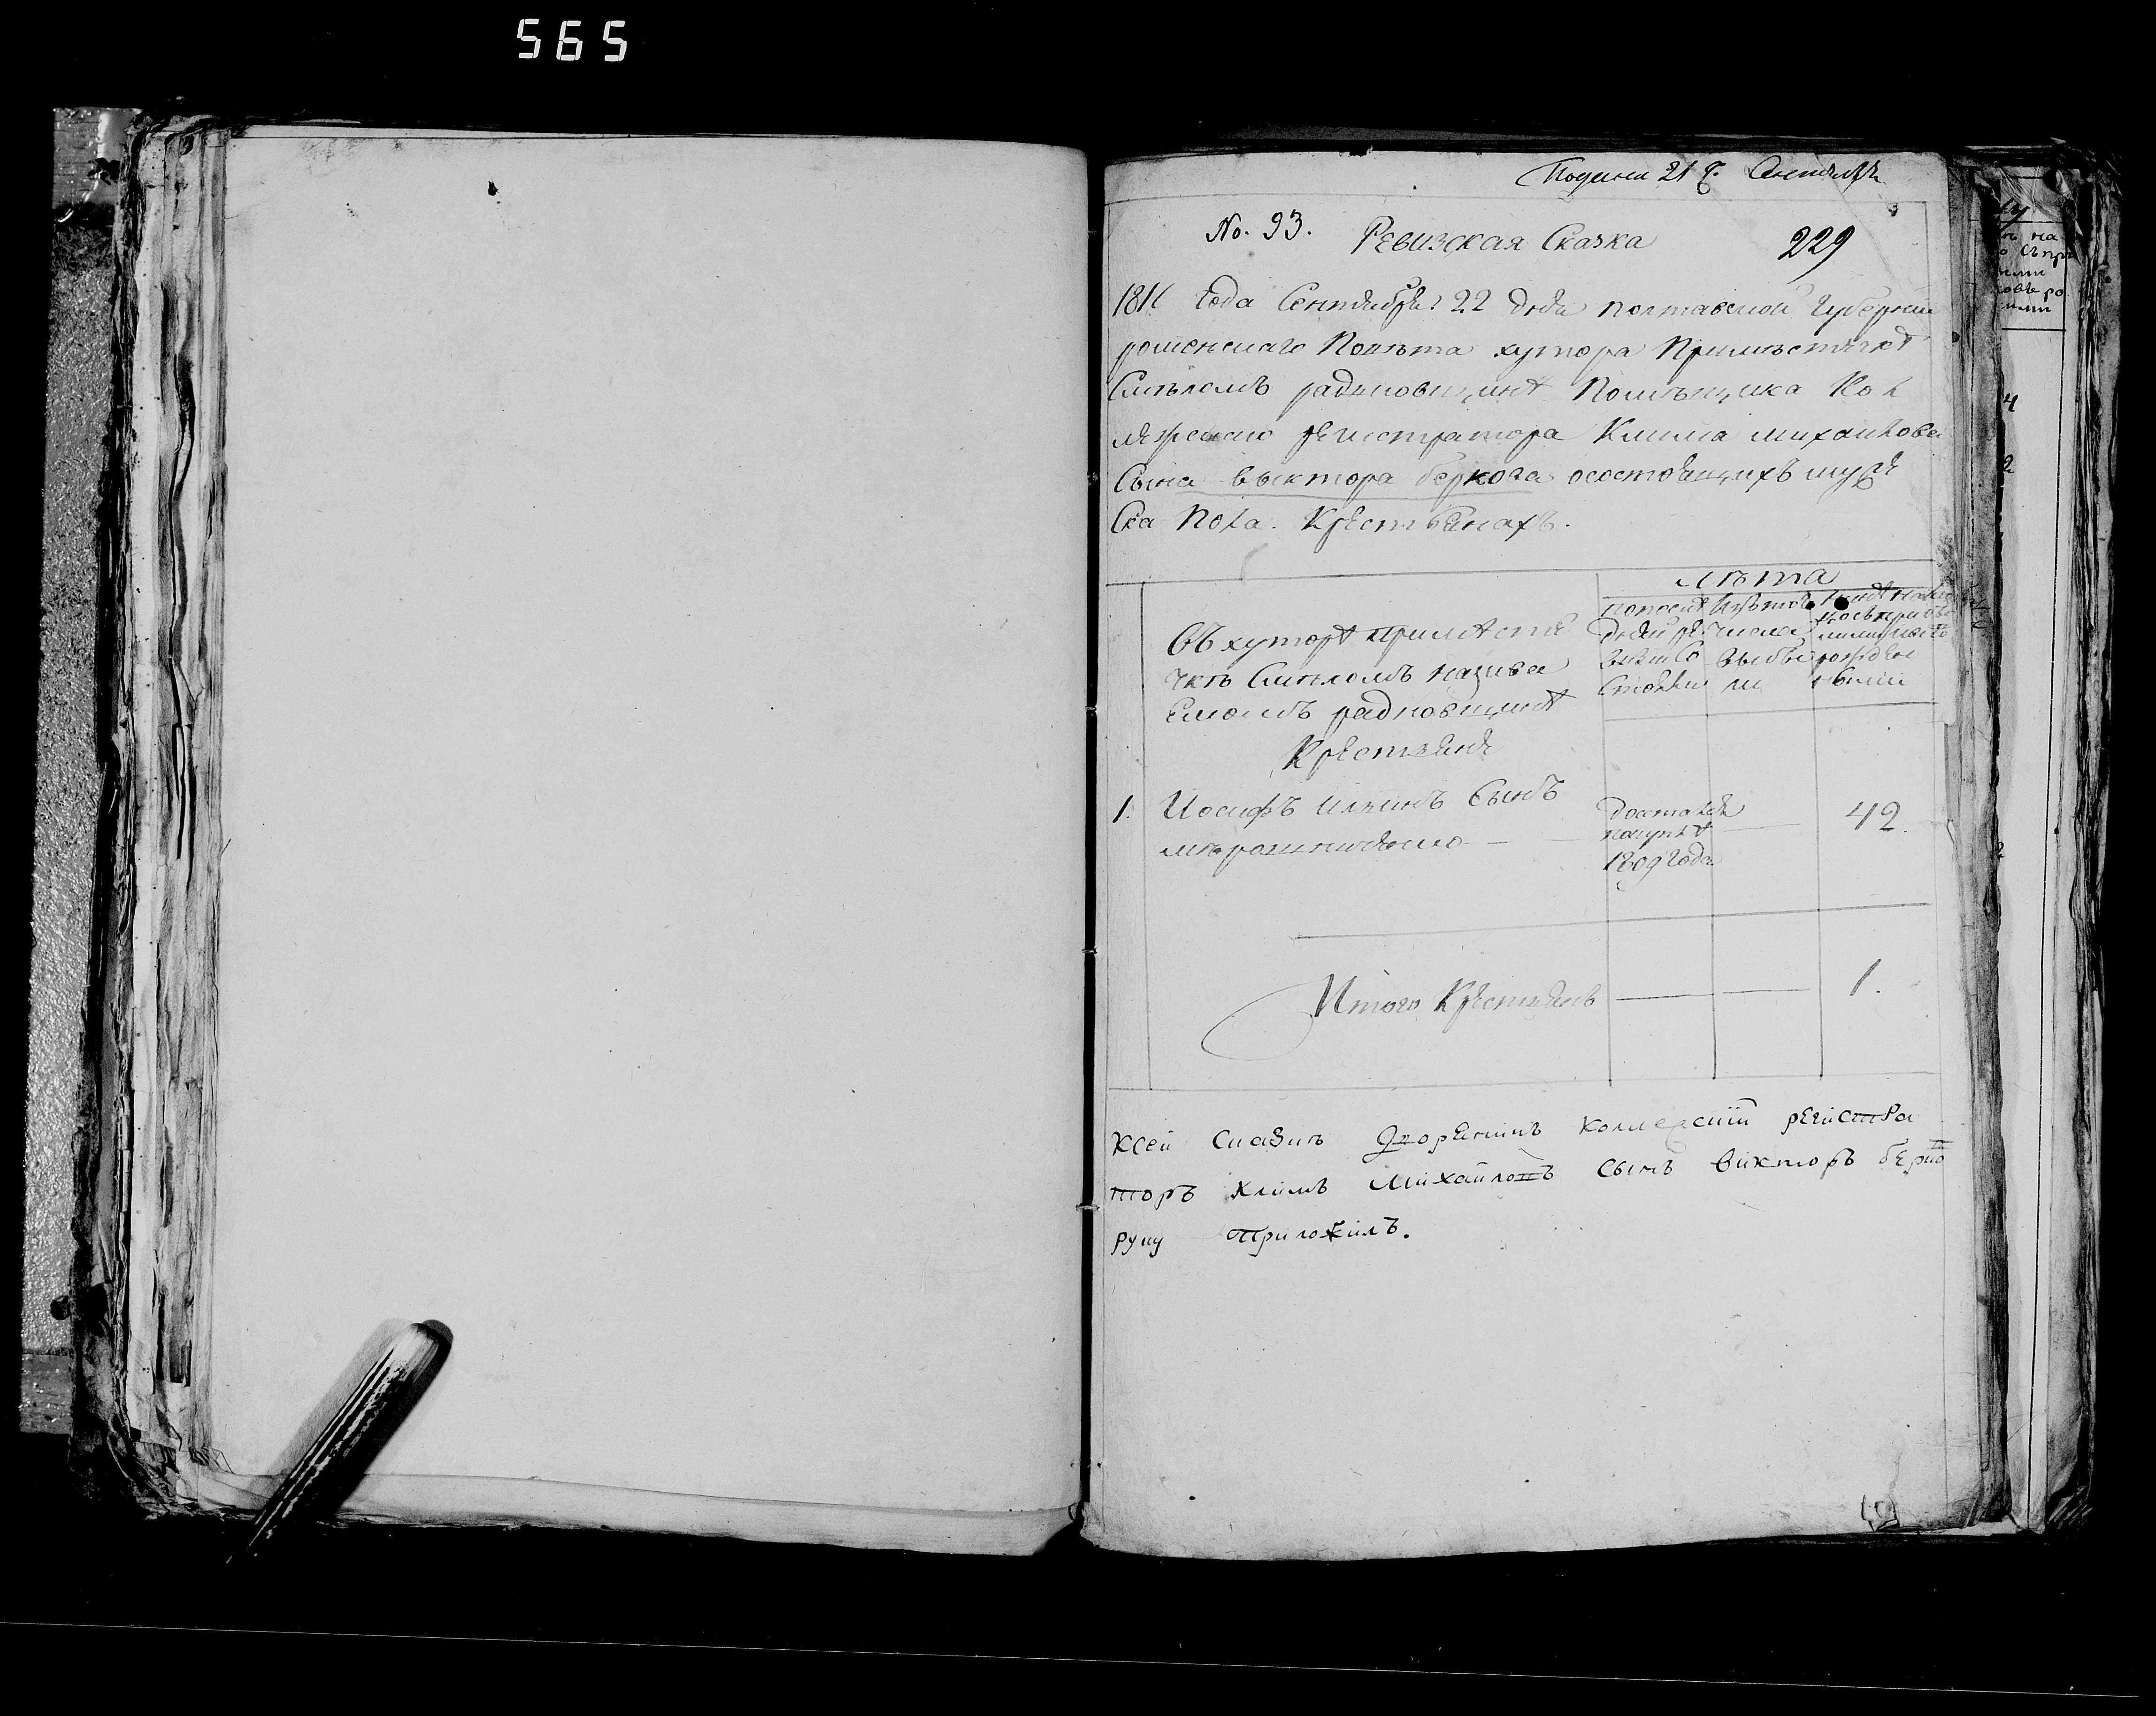 565
Подана 21 г. Сентября
No. 93. Ревизская Сказка 229
1811 года Сентября 22 дня полтавской Губернии
роменскаго Повѣта хутора При мѣстечкѣ
Смѣломъ радковщинѣ Помѣщика Кол
лежскаго регистратора Клима михаилова
Сына виктора беркога осостоящихъ мужε
Ска Пола. Крестьянахъ.
Лѣта
Въ хуторѣ При мѣсте
чкѣ Смѣломъ называ
Емомъ радковщинѣ
Крестьяне
попослѣ
дней ре
визіи Со
Стояли
Изъ того
числа
выбы
ли
нынѣ на ли
рожде
ными
1. Иосифъ Ильинъ Сынъ
мирошниченко
достался
покупкѣ
1809 года
42.
Итого Крестьянъ 1.
Ксей сказки дворянинъ коллежскій регистра
торъ климъ михайловъ сынъ викторъ берко
руку приложилъ.